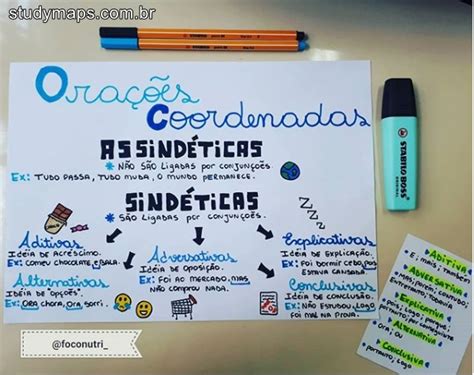 studymaps.com.br
Orações
Coordenadas
ASSINDÉTICAS
* NÃO SÃO LIGADAS POR CONJUNÇÕES.
EX: TUDO PASSA, TUDO MUDA, O MUNDO PERMANECE.
SINDÉTICAS
* SÃO LIGADAS POR CONJUNÇÕES.
Aditivas
IDEIA DE ACRÉSCIMO.
EX: COMEU CHOCOLATE E BALA.
Adversativas
IDEIA DE OPOSIÇÃO.
EX: FOI AO MERCADO, MAS
NÃO COMPROU NADA.
Explicativas
IDEIA DE EXPLICAÇÃO.
EX: FOI DORMIR CEDO, POIS
ESTAVA CANSADA.
Alternativas
IDEIA DE OPÇÕES.
EX: ORA CHORA, ORA SORRI.
Conclusivas
IDEIA DE CONCLUSÃO.
EX: NÃO ESTUDOU, LOGO
FOI MAL NA PROVA.
@foconutri_
STABILO BOSS
ADITIVA
E, mais, também
ADVERSATIVA
Mas, porém, contudo,
Entretanto, todavia
Explicativa
Pois, porque,
portanto, por conseguinte
ALTERNATIVA
Ora, ou
CONCLUSIVA
Portanto, logo